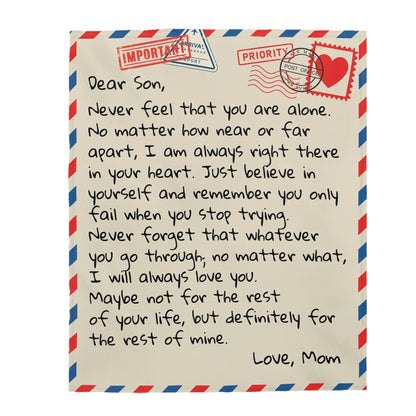 IMPORTANT
ARRIVAL
PRIORITY
POST OFFICE
Dear Son,
Never feel that you are alone.
No matter how near or far
apart, I am always right there
in your heart. Just believe in
yourself and remember you only
fail when you stop trying.
Never forget that whatever
you go through, no matter what,
I will always love you.
Maybe not for the rest
of your life, but definitely for
the rest of mine.
Love, Mom